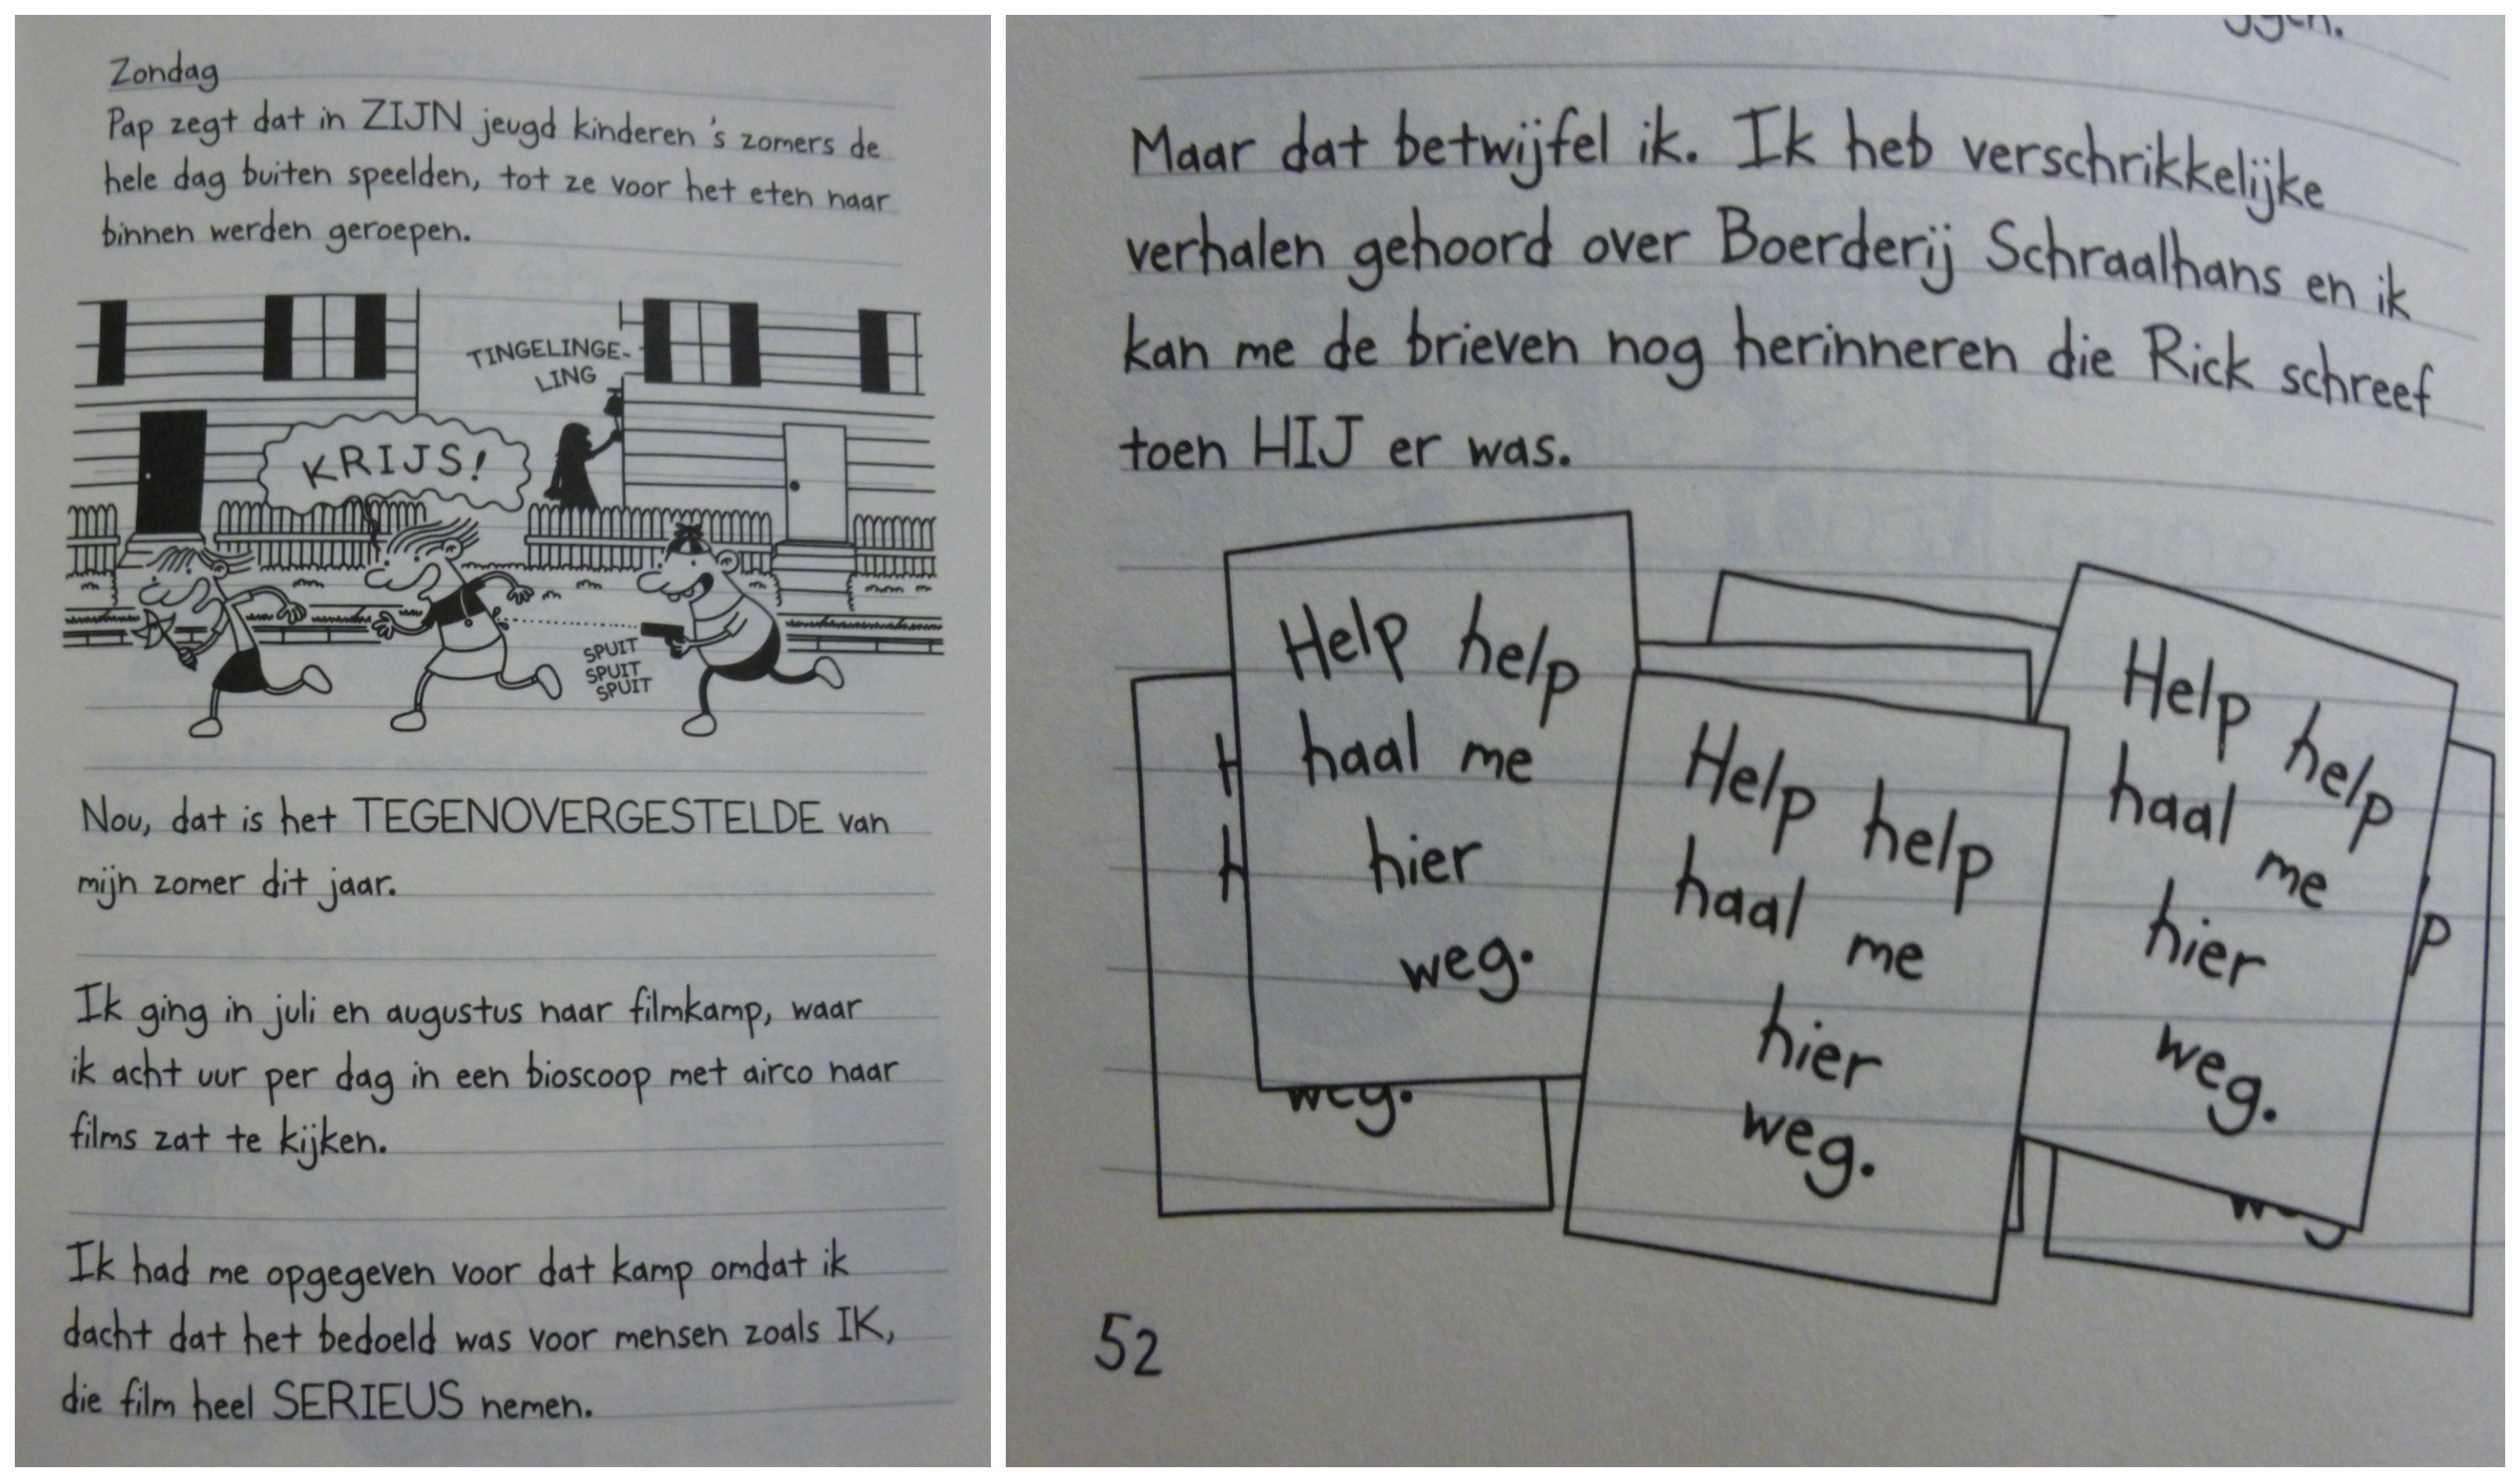 Zondag
Pap zegt dat in ZIJN jeugd kinderen 's zomers de
hele dag buiten speelden, tot ze voor het eten naar
binnen werden geroepen.
TINGELINGE-
LING
KRIJS!
SPUIT
SPUIT
SPUIT
Nou, dat is het TEGENOVERGESTELDE van
mijn zomer dit jaar.
Ik ging in juli en augustus naar filmkamp, waar
ik acht uur per dag in een bioscoop met airco naar
films zat te kijken.
Ik had me opgegeven voor dat kamp omdat ik
dacht dat het bedoeld was voor mensen zoals IK,
die film heel SERIEUS nemen.
Maar dat betwijfel ik. Ik heb verschrikkelijke
verhalen gehoord over Boerderij Schraalhans en ik
kan me de brieven nog herinneren die Rick schreef
toen HIJ er was.
Help help
haal me
hier
weg.
weg.
Help help
haal me
hier
weg.
Help help
haal me
hier
weg.
p
52